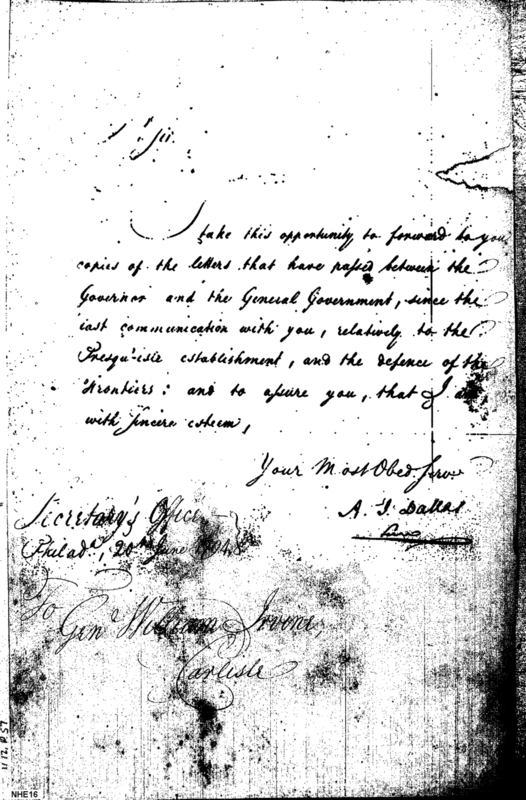 Sir.
I take this opportunity to forward to you
copies of the letters that have passed between the
Governor and the General Government, since the
last communication with you, relatively to the
Presqu'isle establishment, and the defence of the
frontiers: and to assure you, that I am
with sincere esteem,
Your Most Obed. Serv
A. J. Dallas
Secretary's Office
Philada, 20th June 1794
To
Genl William Irvine,
Carlisle
NHE16